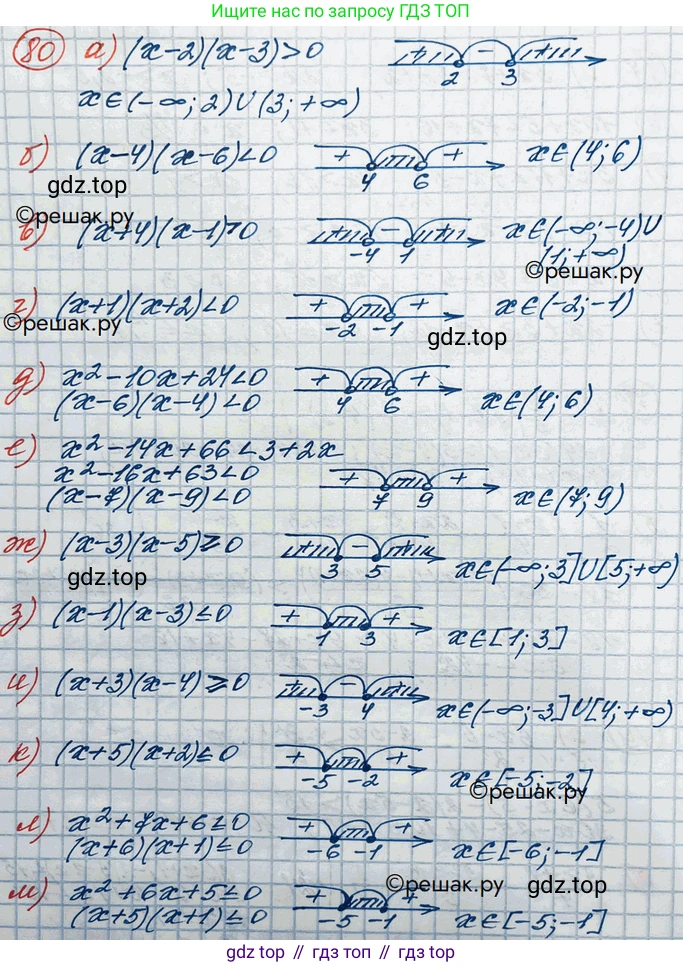 Ищите нас по запросу ГДЗ ТОП
80 а) (x-2)(x-3)>0 + - + 2 3
x∈(-∞; 2)∪(3; +∞)
б) (x-4)(x-6)<0 + + 4 6 x∈(4; 6)
gdz.top
©решак.ру
в) (x+4)(x-1)>0 - -4 1 x∈(-∞; -4)∪
(1; +∞)
©решак.ру
г) (x+1)(x+2)<0 + + -2 -1 x∈(-2; -1)
©решак.ру
gdz.top
д) x²-10x+24<0 + + 4 6
(x-6)(x-4)<0 x∈(4; 6)
е) x²-14x+66<3+2x
x²-16x+63<0 + + 7 9
(x-7)(x-9)<0 x∈(7; 9)
ж) (x-3)(x-5)≥0 + - + 3 5
gdz.top
x∈(-∞; 3]∪[5; +∞)
з) (x-1)(x-3)≤0 + + 1 3 x∈[1; 3]
и) (x+3)(x-4)≥0 + - + -3 4 x∈(-∞; -3]∪[4; +∞)
к) (x+5)(x+2)≤0 + + -5 -2 x∈[-5; -2]
©решак.ру
л) x²+7x+6≤0 + + -6 -1
(x+6)(x+1)≤0 x∈[-6; -1]
©решак.ру
gdz.top
м) x²+6x+5≤0 + + -5 -1
(x+5)(x+1)≤0 x∈[-5; -1]
gdz.top // гдз топ // gdz top